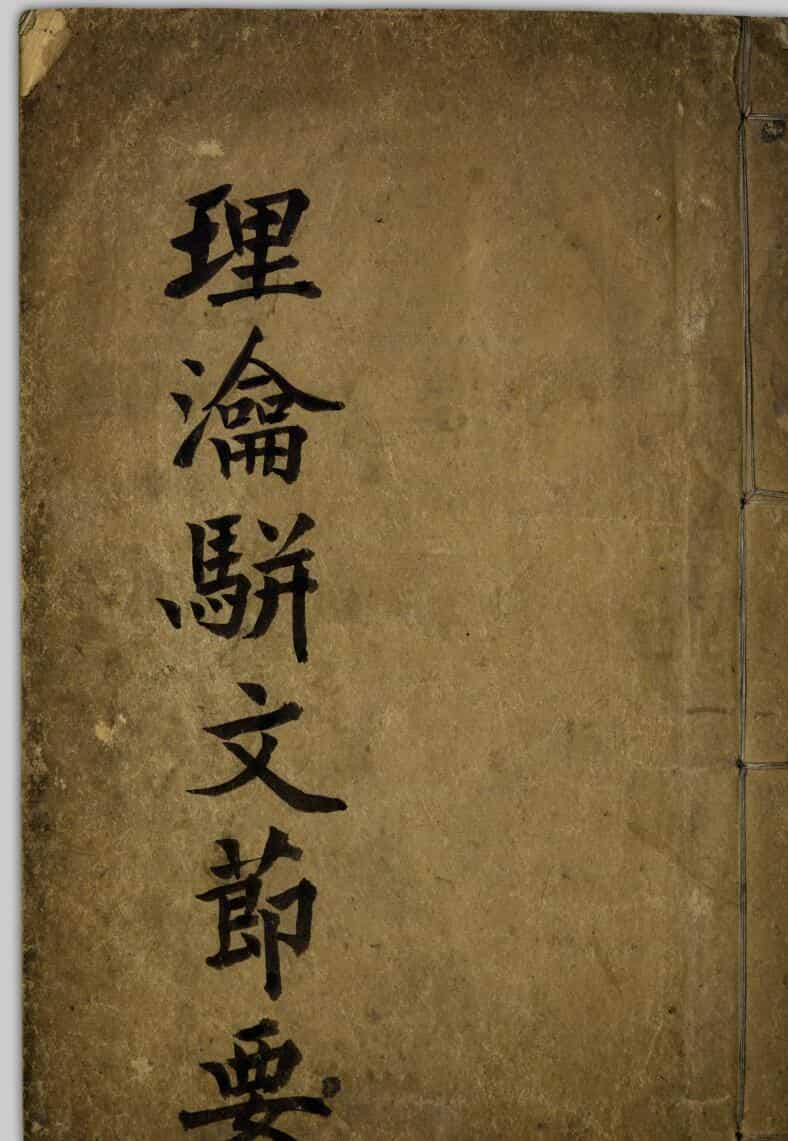 理瀹駢文節要